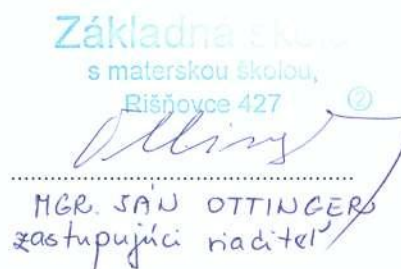 Základná škola
s materskou školou,
Rišňovce 427 ②
Ottinger
MGR. JÁN OTTINGER
zastupujúci riaditeľ